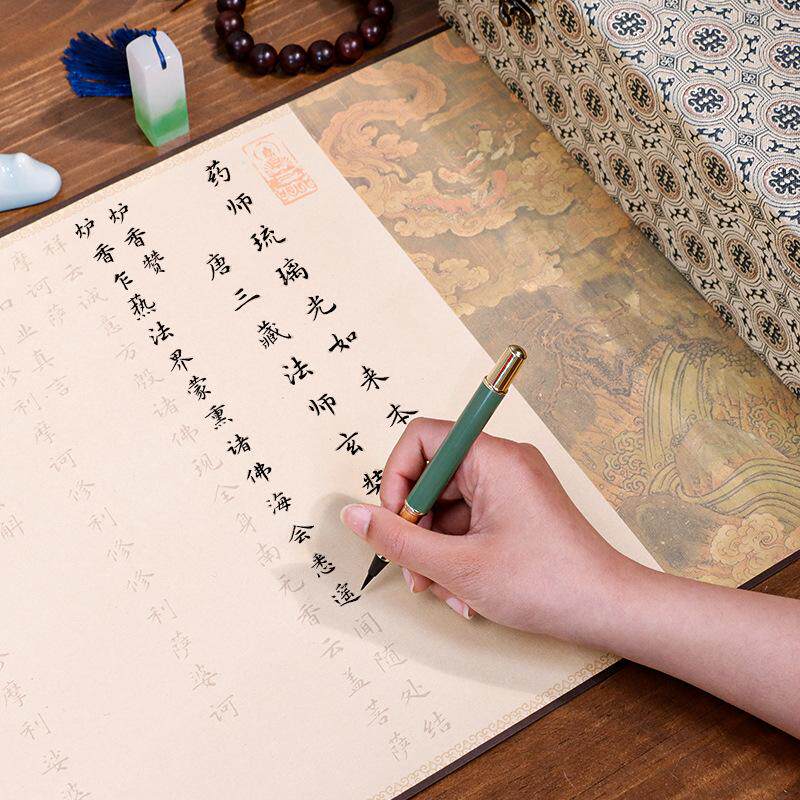 药师琉璃光如来本
唐三藏法师玄奘
炉香赞
炉香乍热法界蒙熏诸佛海会悉遥闻随处结
祥云诚意方殷诸佛现全身南无香云盖菩萨
摩诃萨
口业真言
修利摩诃修利修修利萨婆诃
解
摩利娑婆